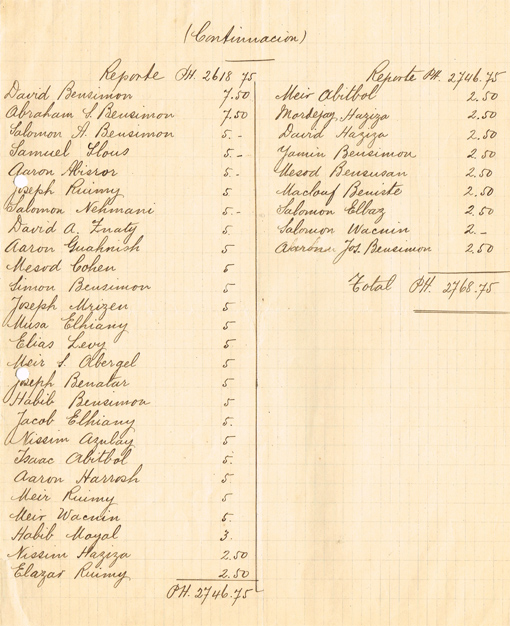 (Continuacion)
Reporte PH. 2618 75
David Bensimon 7.50
Abraham S. Bensimon 7.50
Salomon A. Bensimon 5.-
Samuel Llous 5.-
Aaron Abisror 5.
Joseph Ruimy 5
Salomon Nehmani 5.-
David A. Znaty 5
Aaron Guahnish 5
Mesod Cohen 5
Simon Bensimon 5
Joseph Mrizen 5
Musa Elhiany 5
Elias Levy 5
Meir S. Abergel 5
Joseph Benatar 5
Habib Bensimon 5
Jacob Elhiany 5.
Nissim Azulay 5
Isaac Abitbol 5.
Aaron Harrosh 5
Meir Ruimy 5
Meir Wacnin 5.
Habib Moyal 3.
Nissim Haziza 2.50
Elazar Ruimy 2.50
PH. 2746.75
Reporte PH. 2746.75
Meir Abitbol 2.50
Mordejay Haziza 2.50
David Haziza 2.50
Yamin Bensimon 2 50
Mesod Bensusan 2.50
Maclouf Beniste 2.50
Salomon Elbaz 2.50
Salomon Wacnin 2.-
Aaron Jos. Bensimon 2.50
Total PH. 2768.75